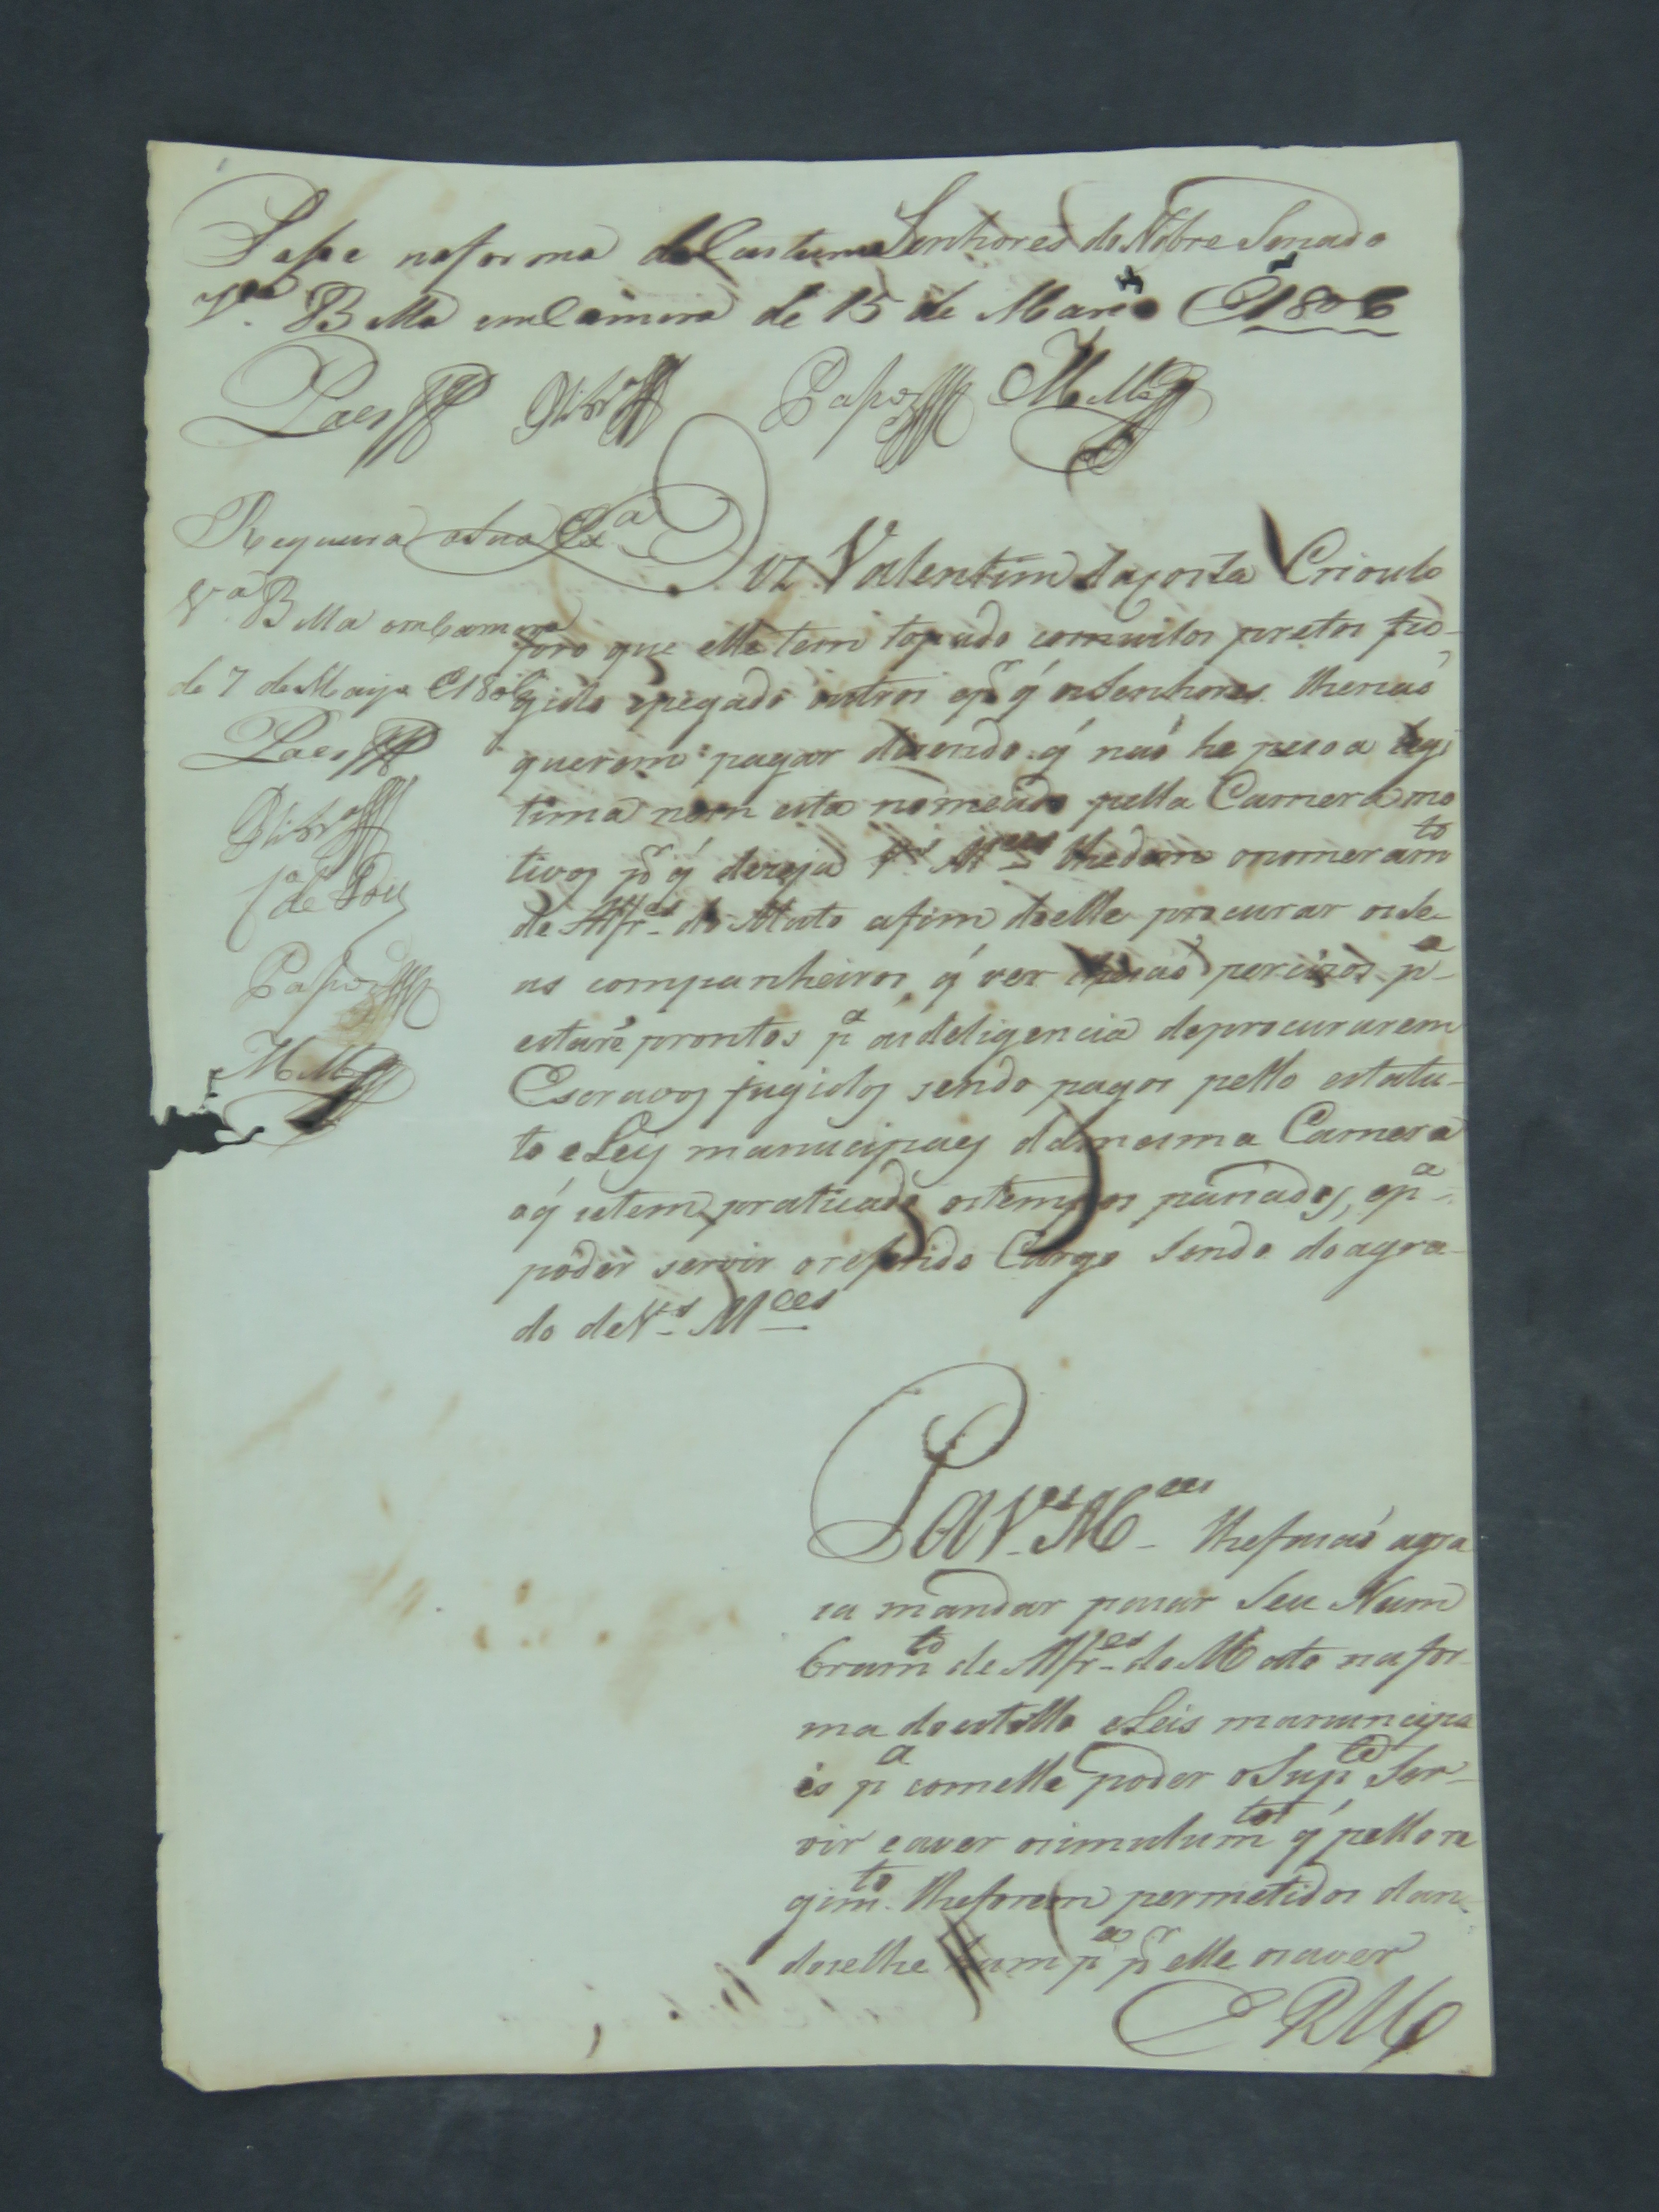 Passe na forma do Custume Senhores do Nobre Senado
V.ª Bella em Camera de 15 de Março de 1806
Paes Passos Mello
Requeira a Sua Ex.ª
V.ª Bella em Camera
de 7 de Março de 1806
Paes
Passos
Mello
Diz Valentim da Costa Crioulo
foro que elle tem topado com muitos pretos fu-
gido e pegado outros e p.r q́ os Senhores lhe naó
querem pagar dizendo q́ naó he pesoa legi
tima nem esta nomeado pella Camera mo
tivos p.r q́ dezeja V.s M.ces lhe dem o nomeram.to
de Alfr.es do Mato afim de elle procurar os se-
us companheiros q́ ver lhe saó percizos p.ª
estarẽ prontos p.ª as deligencia de procurarem
Escravos fugidos sendo pagos pello estatu-
to e Leis manucipaes da mesma Camera
o q́ se tem praticado os tempos passados, e p.ª
poder servir o referido Cargo sendo do agra-
do de V.s M.ces
P a V.s M.ces lhe fasaó a gra
sa mandar passar seu Num
bram.to de Alfr.es do Mato na for-
ma do estillo e Leis manuncipa
es p.ª com elle poder o Sup.te Ser-
vir e aver os imulum.tos q́ pello re
gim.to lhe forem permetidos dan-
doselhe hum p.ª p.r elle os aver
E R M